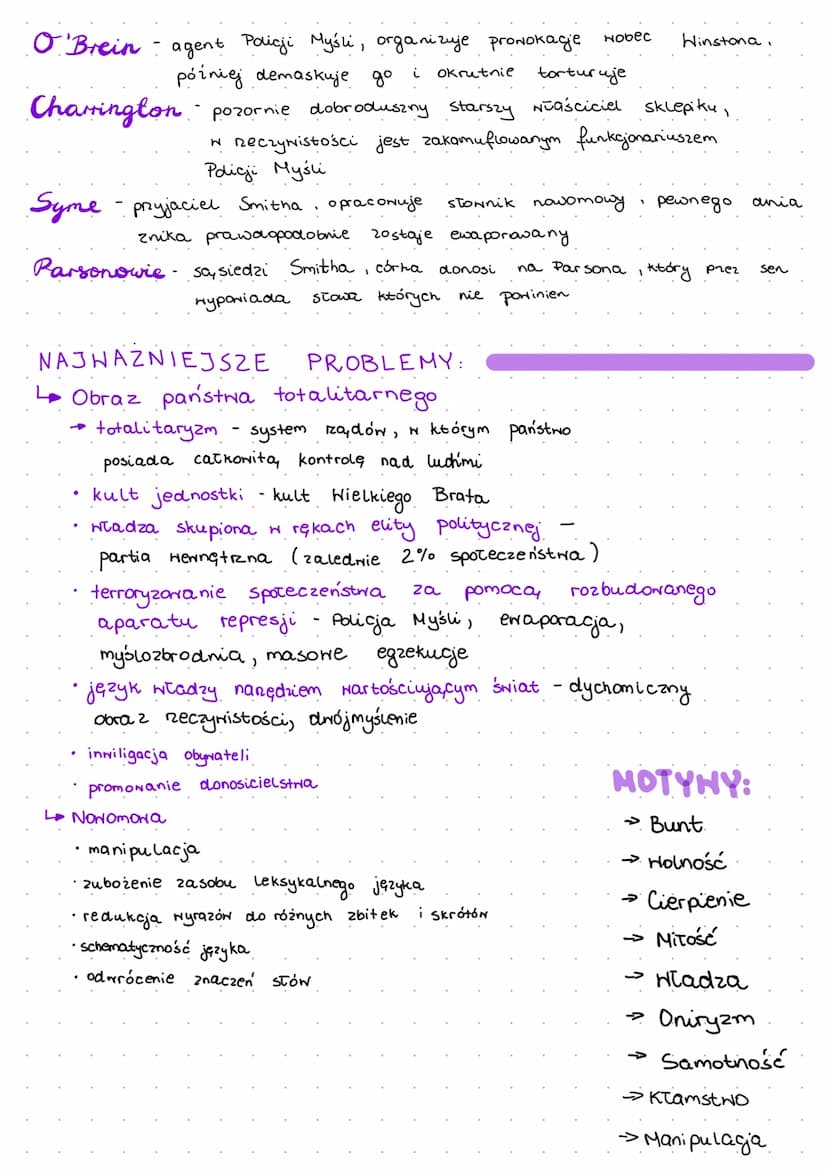 O'Brein - agent Policji Myśli, organizuje prowokacje wobec Winstona,
później demaskuje go i okrutnie torturuje
Charrington - pozornie dobroduszny starszy właściciel sklepiku,
w rzeczywistości jest zakamuflowanym funkcjonariuszem
Policji Myśli
Syme - przyjaciel Smitha, opracowuje słownik nowomowy, pewnego dnia
znika prawdopodobnie zostaje ewaporawany
Parsonowie - sąsiedzi Smitha, córka donosi na Parsona, który prez sen
wypowiada słowa których nie powinien
NAJWAŻNIEJSZE PROBLEMY:
↳ Obraz państwa totalitarnego
→ totalitaryzm - system rządów, w którym państwo
posiada całkowitą kontrolę nad ludźmi
• kult jednostki - kult Wielkiego Brata
• władza skupiona w rękach elity politycznej -
partia wewnętrzna (zaledwie 2% społeczeństwa)
• terroryzowanie społeczeństwa za pomocą rozbudowanego
aparatu represji - Policja Myśli, ewaporacja,
myślozbrodnia, masowe egzekucje
• język władzy narzędziem wartościującym świat - dychomiczny
obraz rzeczywistości, dwójmyślenie
• inwiligacja obywateli
• promowanie donosicielstwa
↳ Nowomowa
• manipulacja
• zubożenie zasobu leksykalnego języka
• redukcja wyrazów do różnych zbitek i skrótów
• schematyczność języka
• odwrócenie znaczeń słów
MOTYWY:
→ Bunt
→ Wolność
→ Cierpienie
→ Miłość
→ Władza
→ Oniryzm
→ Samotność
→ Kłamstwo
→ Manipulacja